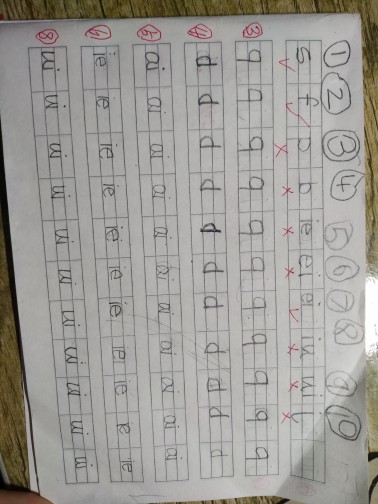 ① ② ③ ④ ⑤ ⑥ ⑦ ⑧ ⑨ ⑩
s f p b ie ei
③ q q q q q q q q q q q
④ d d d d d d d d d d d
⑤ ai ai ai ai ai ai ai ai ai ai ai
⑥ ie ie ie ie ie ie ie ie ie ie ie
⑧ ui ui ui ui ui ui ui ui ui ui ui